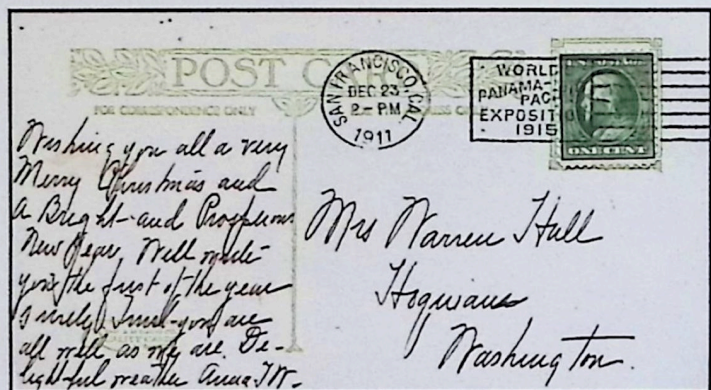 POST CARD
FOR CORRESPONDENCE ONLY
SAN FRANCISCO, CAL.
DEC 23
2 - P.M.
1911
WORLD
PANAMA-
PAC
EXPOSIT
1915
U.S. POSTAGE
ONE CENT
Wishing you all a very
Merry Christmas and
a Bright and Prosperous
New Year. Will write
you the first of the year
surely. Trust you are
all well, as we are. De-
lightful weather Anna
Mrs Warren Hall
Washington.